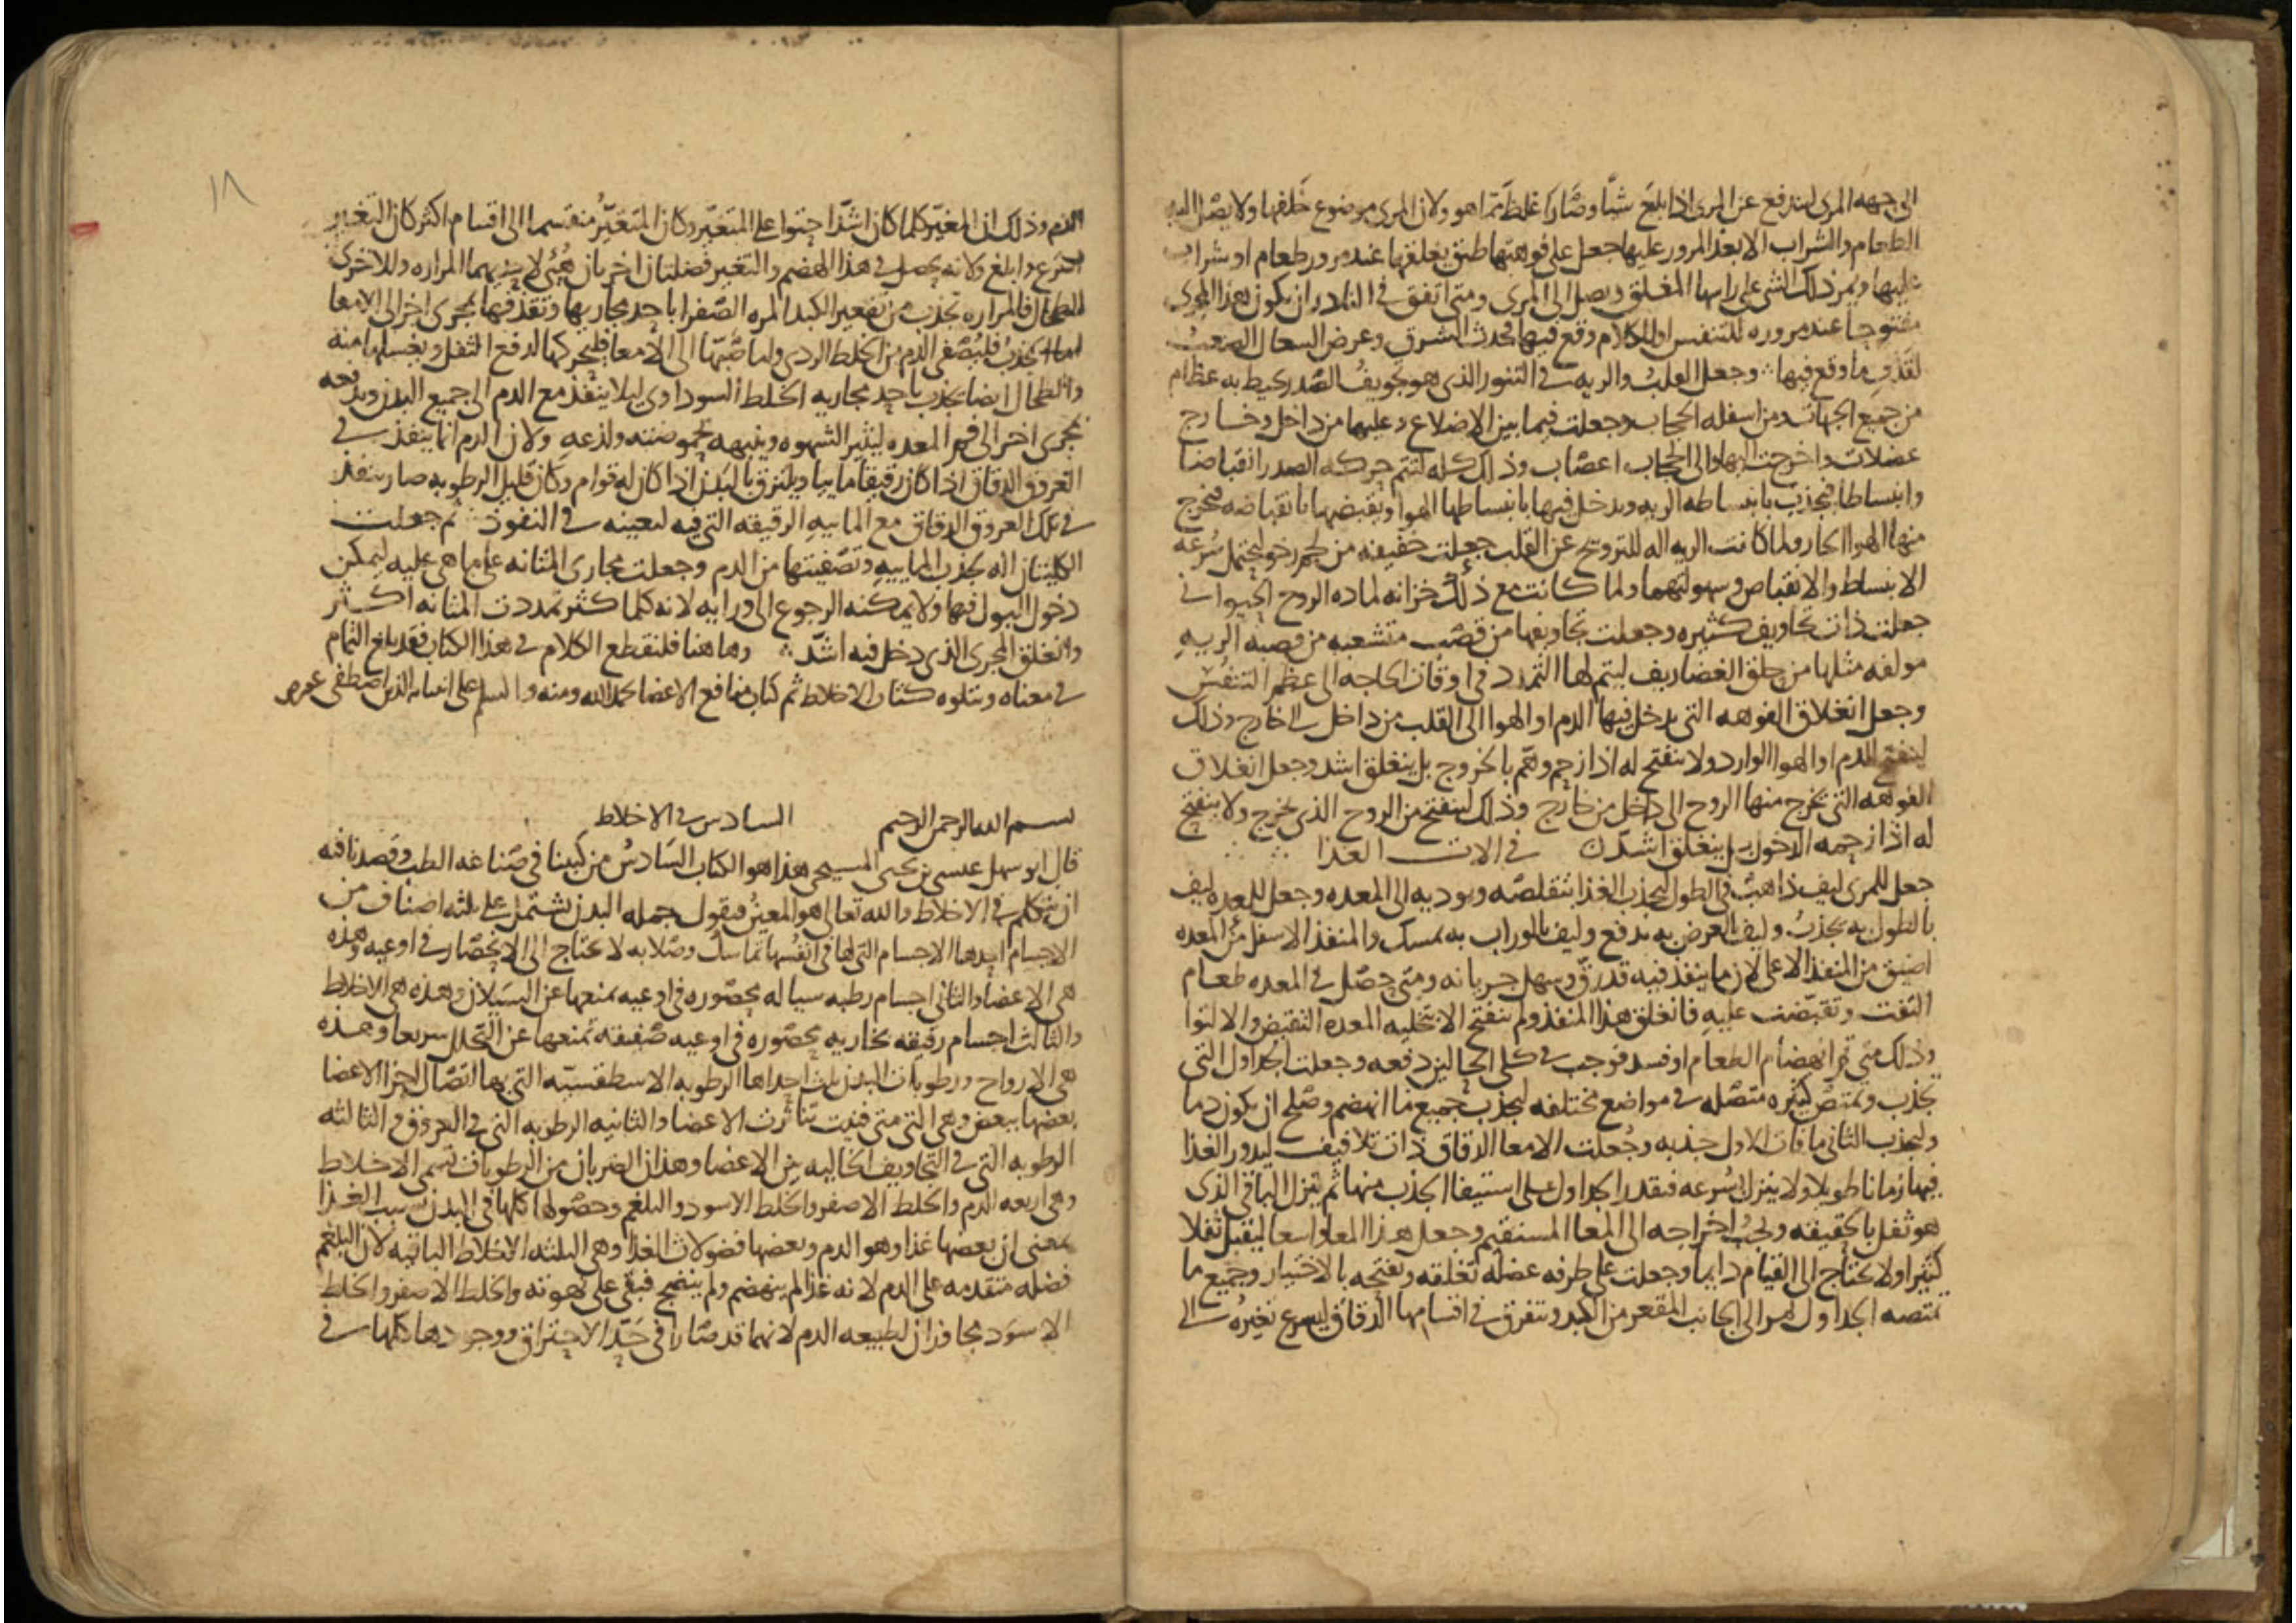 الى جهه المرى ليندفع عن المرى اذا بلغ شيا وصار اغلظ مما هو ولان المرى موضوع خلفها ولا يصل اليه
الطعام والشراب الا بعد المرور عليها جعل على فوهتها طبق يغلقها عند مرور طعام او شراب
عليها ويمر ذلك الشى على راسها المغلق ويصل الى المرى ومتى اتفق فى النادر ان يكون هذا المجرى
مفتوحا عند مروره للتنفس او للكلام وقع فيها فحدث الشرق وعرض السعال الصعب
لقذف ما وقع فيها وجعل القلب والريه فى التنور الذى هو تجويف الصدر يحيط به عظام
من جميع الجهات ومن اسفله الحجاب وجعلت فيما بين الاضلاع وعليها من داخل وخارج
عضلات واخرجت اليها والى الحجاب اعصاب وذلك كله لتتم حركه الصدر انقباضا
وانبساطا فتجذب بانبساطه الريه ويدخل فيها بانبساطها الهوا ويقبضها بانقباضه فيخرج
منها الهوا الحار ولما كانت الريه اله للترويح عن القلب جعلت خفيفه من لحم رخو ليحتمل سرعه
الانبساط والانقباض وسهولتهما ولما كانت مع ذلك خزانه لماده الروح الحيوانى
جعلت ذات تجاويف كثيره وجعلت تجاويفها من قصب متشعبه من قصبه الريه
مولفه مثلها من حلق الغضاريف ليتم لها التمدد فى اوقات الحاجه الى عظم التنفس
وجعل انغلاق الفوهه التى يدخل فيها الدم او الهوا الى القلب من داخل الى خارج وذلك
لينفتح للدم او الهوا الوارد ولا ينفتح له اذا زحم وهم بالخروج بل ينغلق اشد وجعل انغلاق
الفوهه التى يخرج منها الروح الى داخل من خارج وذلك لينفتح من الروح الذى يخرج ولا ينفتح
له اذا زحمه الدخول بل ينغلق اشد فى الات الغذا
جعل للمرى ليف ذاهب فى الطول ليجذب الغذا بتقلصه ويوديه الى المعده وجعل للمعده ليف
بالطول به يجذب وليف بالعرض به يدفع وليف بالوراب به يمسك والمنفذ الاسفل من المعده
اضيق من المنفذ الاعلى لان ما ينفذ فيه قد رق وسهل جريانه ومتى حصل فى المعده طعام
التفت وتقبضت عليه فانغلق هذا المنفذ ولم ينفتح الا بتخليه المعده التقبض والالتوا
وذلك متى تم انهضام الطعام او فسد فوجب فى كلى الحالين دفعه وجعلت الجداول التى
تجذب وتمتص كثيره متصله فى مواضع مختلفه ليجذب جميع ما انهضم وصلح ان يكون دما
وليجذب الثانى ما فات الاول جذبه وجعلت الامعا الدقاق ذات تلافيف ليدور الغذا
فيها زمانا طويلا ولا ينزل بسرعه فيقدر الجداول على استيفا الجذب منها ثم ينزل الباقى الذى
هو ثفل بالحقيقه ويجب اخراجه الى المعا المستقيم وجعل هذا المعا واسعا ليقبل ثفلا
كثيرا ولا يحتاج الى القيام دايما وجعلت على طرفه عضله تغلقه وتفتحه بالاختيار وجميع ما
تمتصه الجداول يمر الى الجانب المقعر من الكبد ويتفرق فى اقسامها الدقاق ليسرع تغيره الى
١٨
الدم وذلك ان المغير كلما كان اشد احتوا على المتغير وكان المتغير منقسما الى اقسام اكثر كان التغير
اسرع وابلغ ولانه يحصل فى هذا الهضم والتغير فضلتان اخريان هيى لاحديهما المراره وللاخرى
الطحال فالمراره تجذب من تقعير الكبد المره الصفرا باحد مجاريها وتقذفها بمجرى اخر الى الامعا
اما الجذب فليصفى الدم من الخلط الردى واما صبها الى الامعا فليحركها لدفع الثفل ويغسلها منه
والطحال ايضا يجذب باحد مجاريه الخلط السوداوى ليلا ينفذ مع الدم الى جميع البدن ويدفعه
بمجرى اخر الى فم المعده ليثير الشهوه وينبهه بحموضته ولذعه ولان الدم انما ينفذ فى
العروق الدقاق اذا كان رقيقا ماييا ويلتزق بالبدن اذا كان له قوام وكان قليل الرطوبه صار ينفذ
فى تلك العروق الدقاق مع الماييه الرقيقه التى فيه لتعينه فى النفوذ ثم جعلت
الكليتان اله لجذب الماييه وتصفيتها من الدم وجعلت مجارى المثانه على ما هى عليه ليمكن
دخول البول فيها ولا يمكنه الرجوع الى ورايه لانه كلما كثر تمددت المثانه اكثر
وانغلق المجرى الذى دخل فيه اشد وها هنا فلنقطع الكلام فى هذا الكتاب فقد بلغ التمام
فى معناه ويتلوه كتاب الاخلاط ثم كتاب منافع الاعضا بحمد الله ومنه والسلم على الذين اصطفى
بسم الله الرحمن الرحيم السادس فى الاخلاط
قال ابو سهل عيسى بن يحيى المسيحى هذا هو الكتاب السادس من كتبنا فى صناعه الطب وقصدنا فيه
ان نتكلم فى الاخلاط والله تعالى هو المعين فنقول جمله البدن تشتمل على ثلثه اصناف من
الاجسام احدها الاجسام التى لها فى انفسها تماسك وصلابه لا تحتاج الى الانحصار فى اوعيه وهذه
هى الاعضا والثانى اجسام رطبه سياله محصوره فى اوعيه تمنعها عن السيلان وهذه هى الاخلاط
والثالث اجسام رقيقه بخاريه محصوره فى اوعيه صفيقه تمنعها عن التحلل سريعا وهذه
هى الارواح ورطوبات البدن ثلث احداها الرطوبه الاسطقسيه التى بها اتصال اجزا الاعضا
بعضها ببعض وهى التى متى فنيت تناثرت الاعضا والثانيه الرطوبه التى فى العروق والثالثه
الرطوبه التى فى التجاويف الخاليه من الاعضا وهذان الضربان من الرطوبات تسمى الاخلاط
وهى اربعه الدم والخلط الاصفر والخلط الاسود والبلغم وحصولها كلها فى البدن بسبب الغذا
بمعنى ان بعضها غذا وهو الدم وبعضها فضولات الغذا وهى الثلثه الاخلاط الباقيه لان البلغم
فضله متقدمه على الدم لانه غذا لم ينهضم ولم ينضج فبقى على نهوته والخلط الاصفر والخلط
الاسود مجاوزان لطبيعه الدم لانهما قد صارا فى حد الاحتراق ووجودها كلها فى